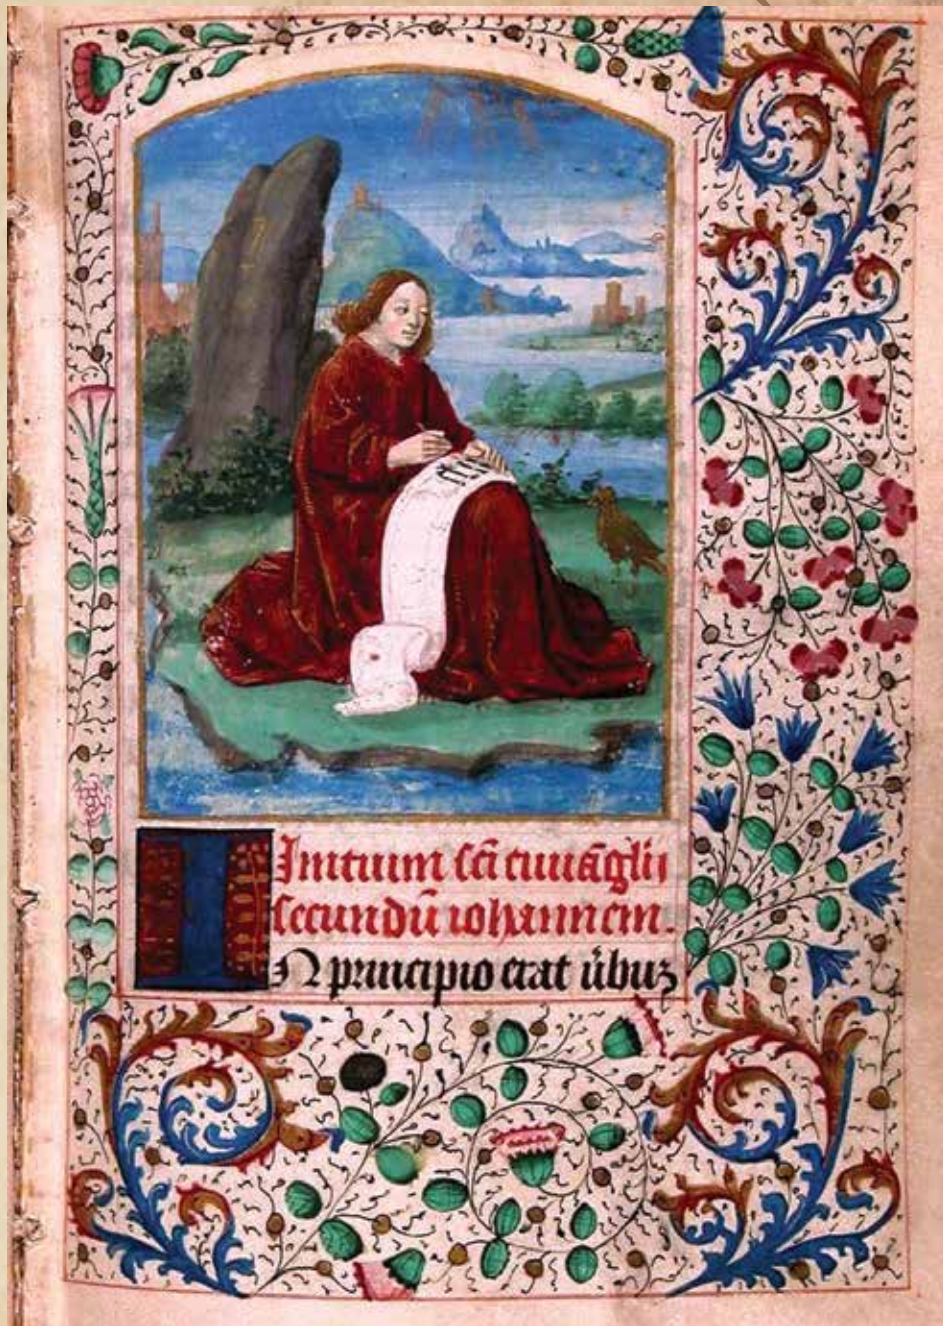 Initium scī euuāglii
secundū iohannem.
IN principio erat ūbuz